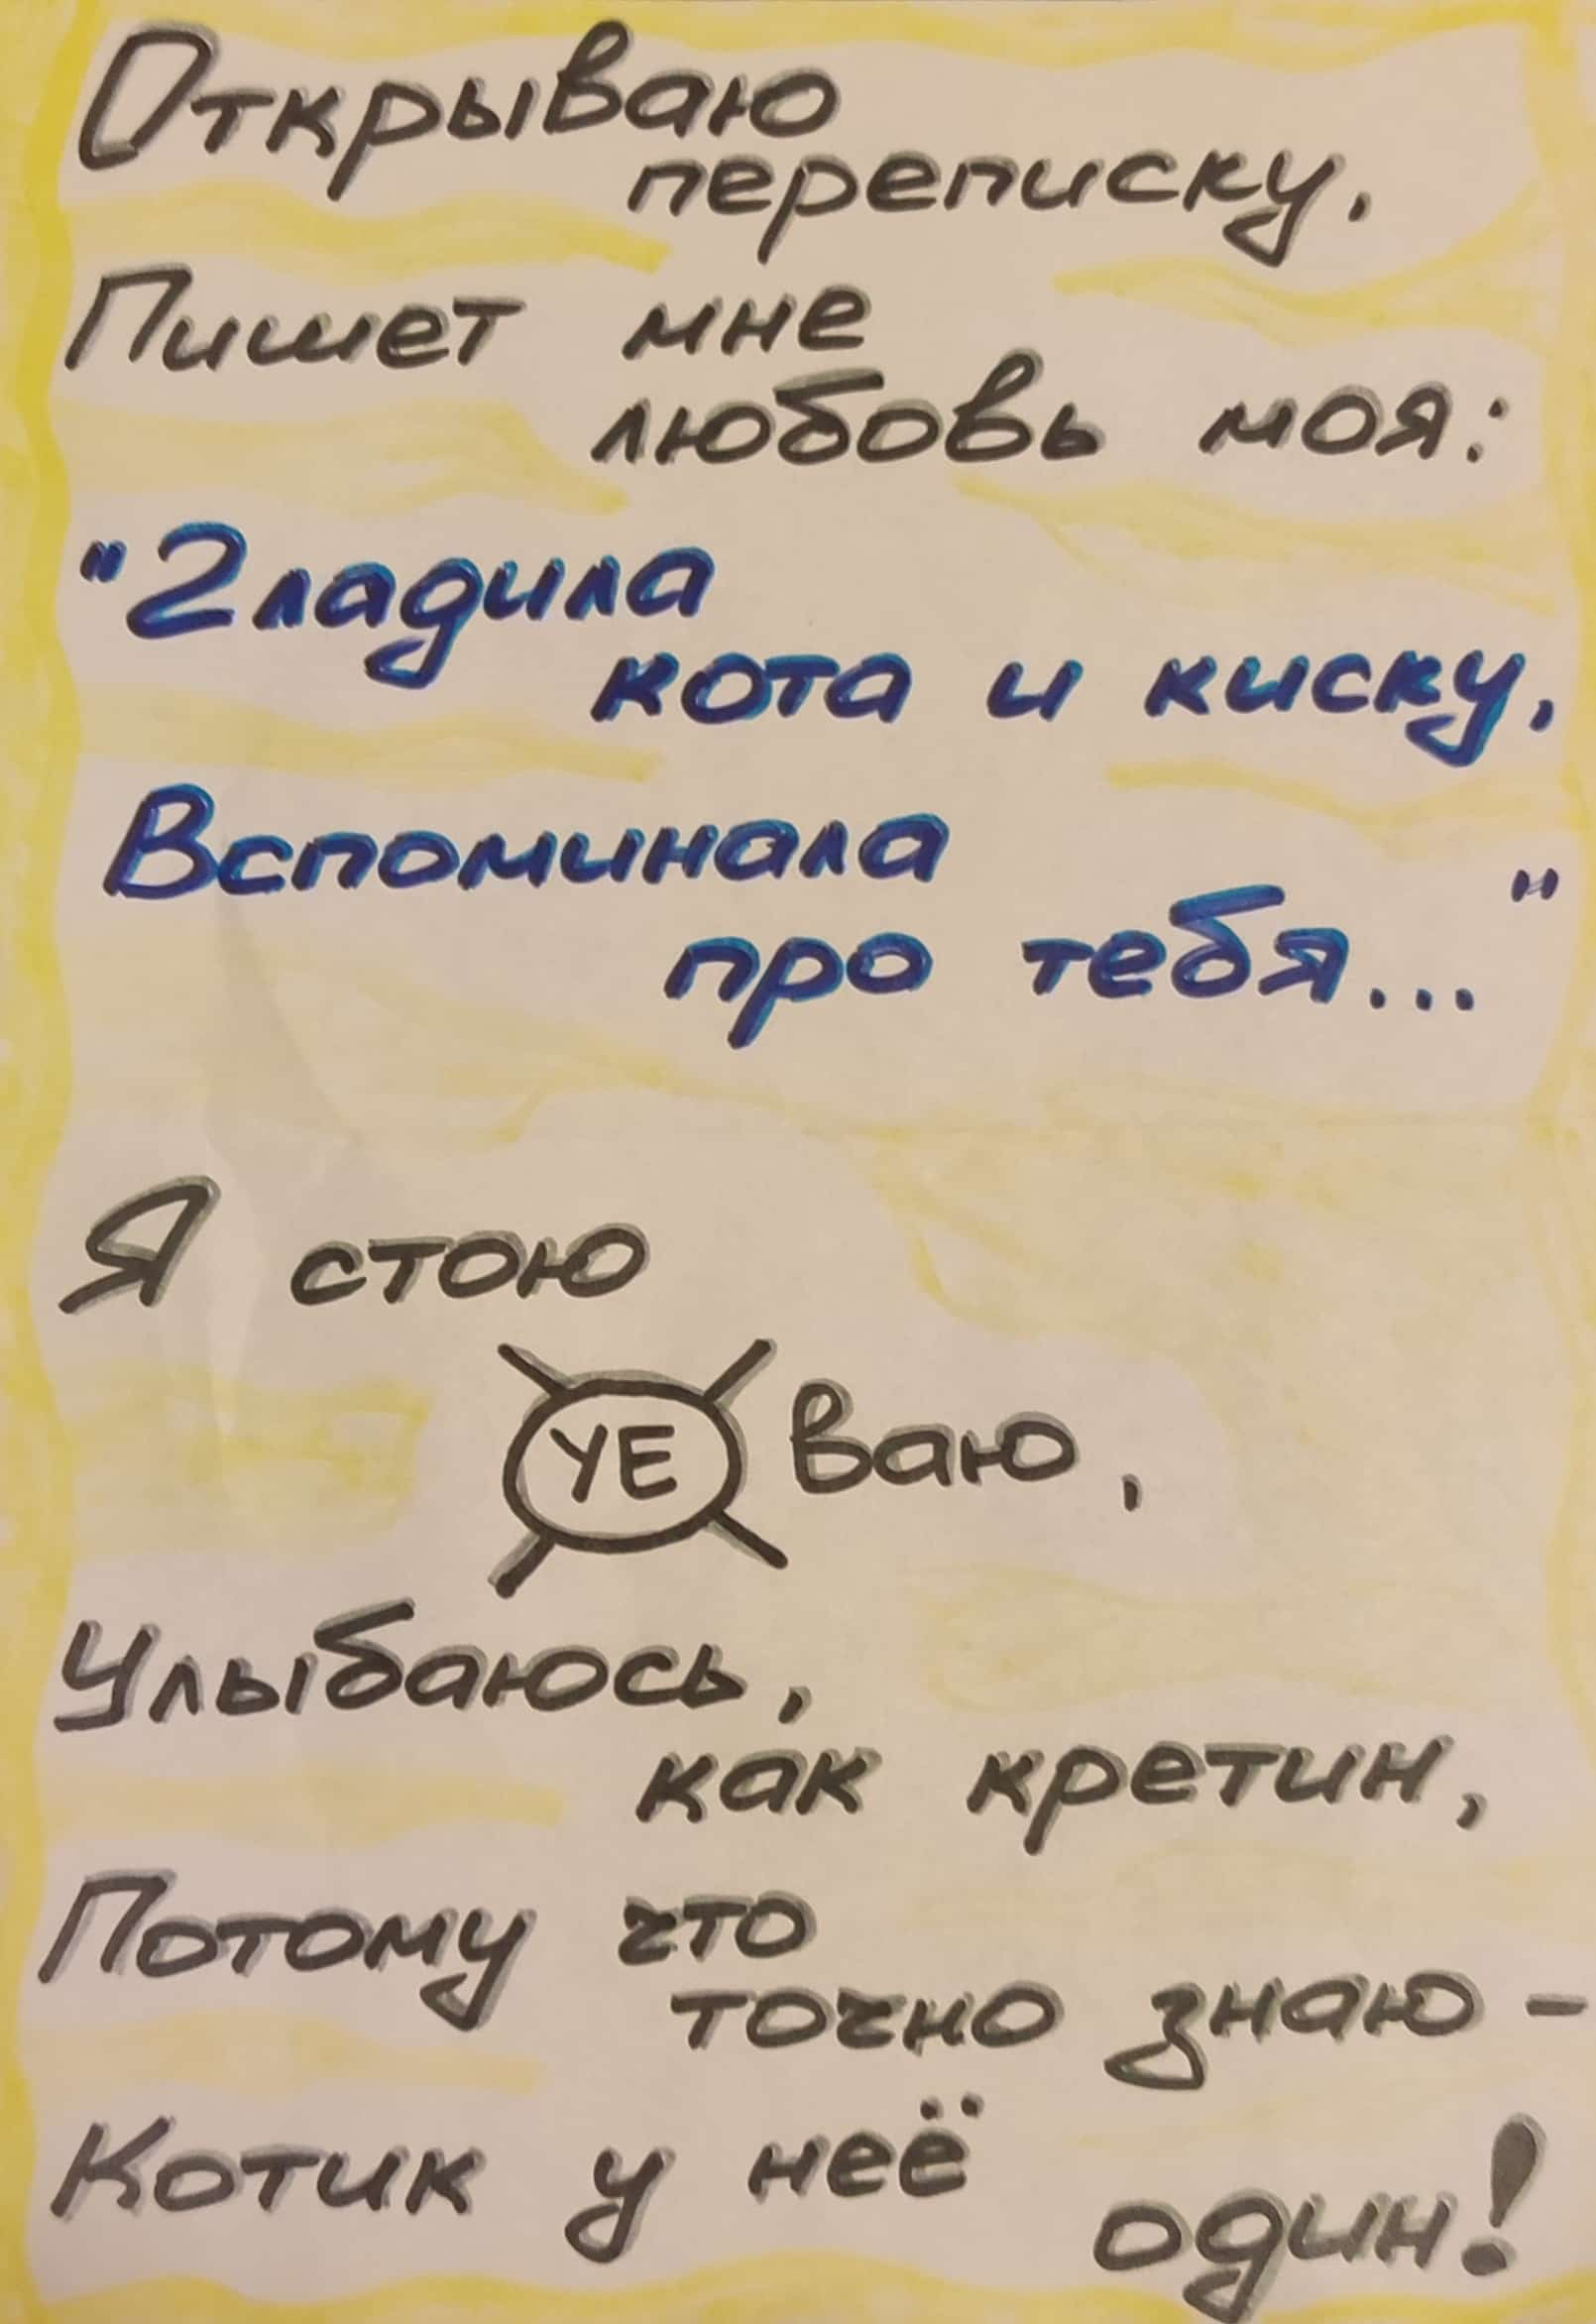 Открываю
переписку,
Пишет мне
любовь моя:
"Гладила
кота и киску,
Вспоминала
про тебя..."
Я стою
УЕ ваю,
Улыбаюсь,
как кретин,
Потому что
точно знаю -
Котик у неё
один!